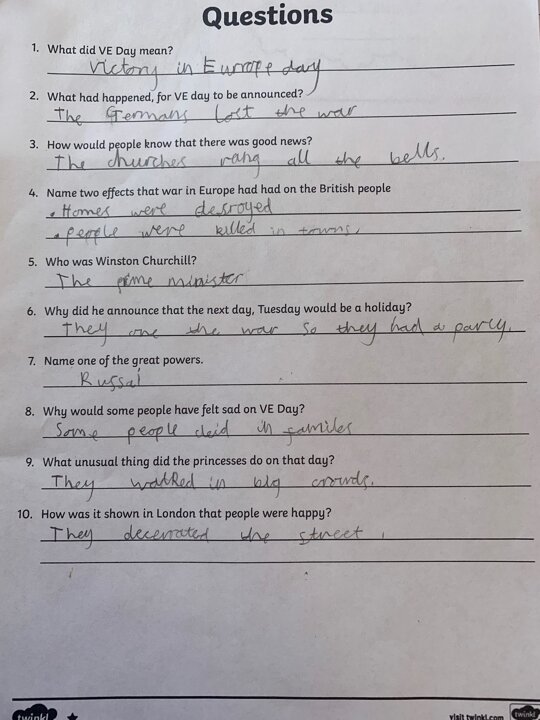 Questions
1. What did VE Day mean?
Victory in Europe day
2. What had happened, for VE day to be announced?
The Germans lost the war
3. How would people know that there was good news?
The churches rang all the bells.
4. Name two effects that war in Europe had had on the British people
• Homes were desroyed
• people were killed in towns.
5. Who was Winston Churchill?
The prime minister
6. Why did he announce that the next day, Tuesday would be a holiday?
They one the war so they had a party.
7. Name one of the great powers.
Russai
8. Why would some people have felt sad on VE Day?
Some people deid in familes
9. What unusual thing did the princesses do on that day?
They walked in big crowds.
10. How was it shown in London that people were happy?
They decerrated the street.
twinkl
visit twinkl.com
twinkl